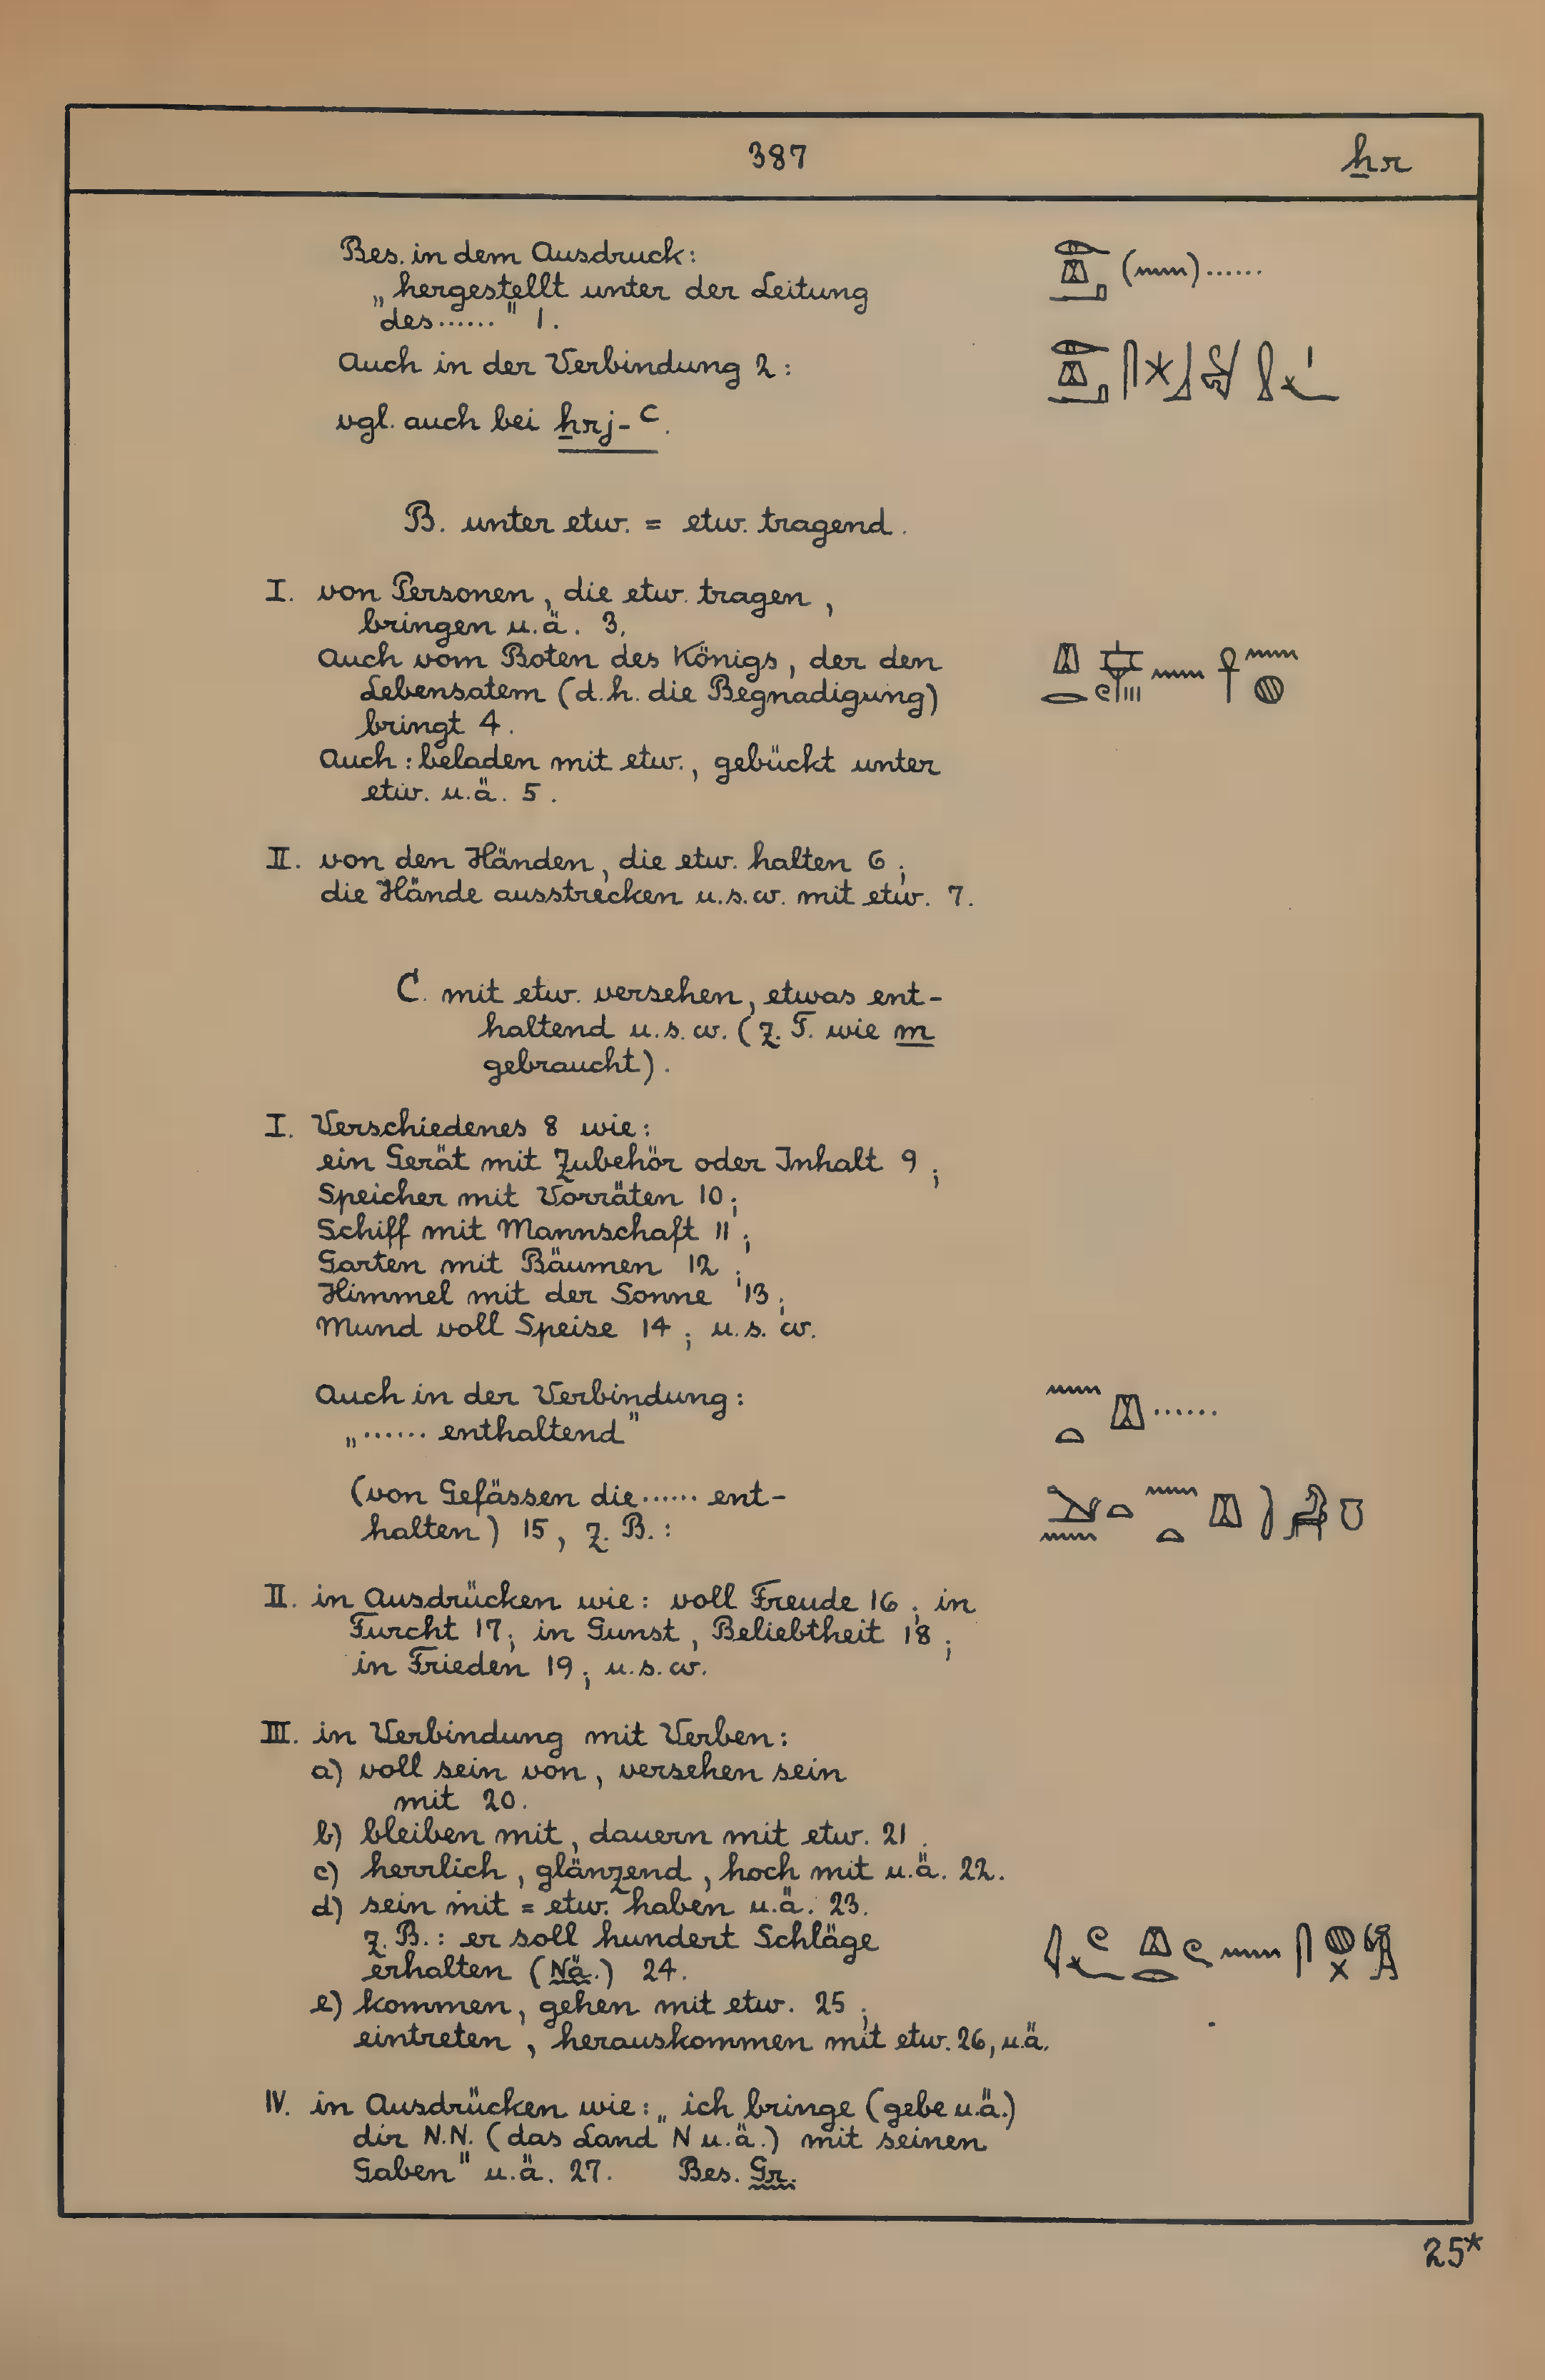 387
ẖr
Bes. in dem Ausdruck:
„hergestellt unter der Leitung
des ......" 1.
Auch in der Verbindung 2:
vgl. auch bei ẖrj-ꜥ.
B. unter etw. = etw. tragend.
I. von Personen, die etw. tragen,
bringen u.ä. 3.
Auch vom Boten des Königs, der den
Lebensatem (d.h. die Begnadigung)
bringt 4.
Auch: beladen mit etw., gebückt unter
etw. u.ä. 5.
II. von den Händen, die etw. halten 6;
die Hände ausstrecken u.s.w. mit etw. 7.
C. mit etw. versehen, etwas ent-
haltend u.s.w. (z.T. wie m
gebraucht).
I. Verschiedenes 8 wie:
ein Gerät mit Zubehör oder Inhalt 9;
Speicher mit Vorräten 10;
Schiff mit Mannschaft 11;
Garten mit Bäumen 12;
Himmel mit der Sonne 13;
Mund voll Speise 14; u.s.w.
Auch in der Verbindung:
„...... enthaltend"
(von Gefässen die ...... ent-
halten) 15, z.B.:
II. in Ausdrücken wie: voll Freude 16; in
Furcht 17; in Gunst, Beliebtheit 18;
in Frieden 19; u.s.w.
III. in Verbindung mit Verben:
a) voll sein von, versehen sein
mit 20.
b) bleiben mit, dauern mit etw. 21.
c) herrlich, glänzend, hoch mit u.ä. 22.
d) sein mit = etw. haben u.ä. 23.
z.B.: er soll hundert Schläge
erhalten (Nä.) 24.
e) kommen, gehen mit etw. 25;
eintreten, herauskommen mit etw. 26, u.ä.
IV. in Ausdrücken wie: „ich bringe (gebe u.ä.)
dir N.N. (das Land N u.ä.) mit seinen
Gaben" u.ä. 27. Bes. Gr.
25*